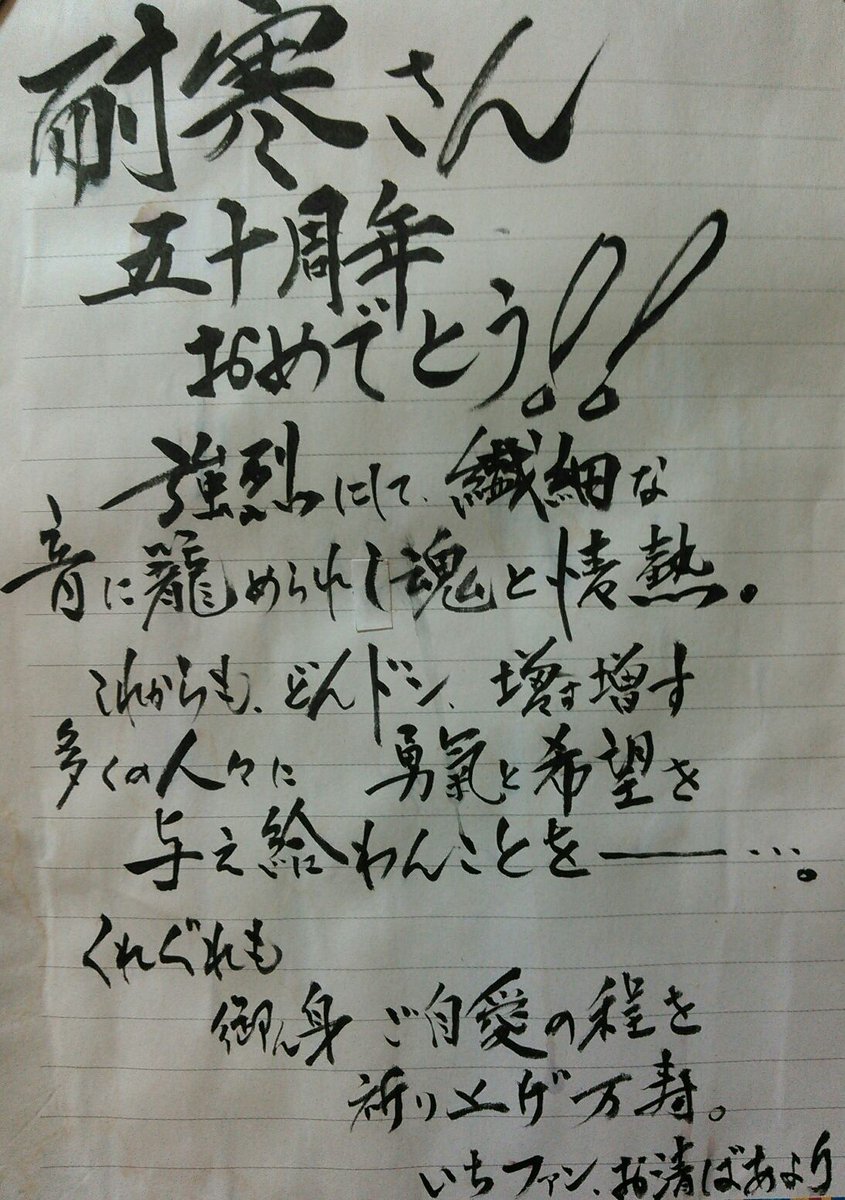 耐寒さん
五十周年
おめでとう!!
強烈にして、繊細な
音に籠められし魂と情熱。
これからも、どんドン、増す増す
多くの人々に 勇氣と希望を
与え給わんことを――…。
くれぐれも
御ん身 ご自愛の程を
祈り上げ万寿。
いちファン、お清ばあより